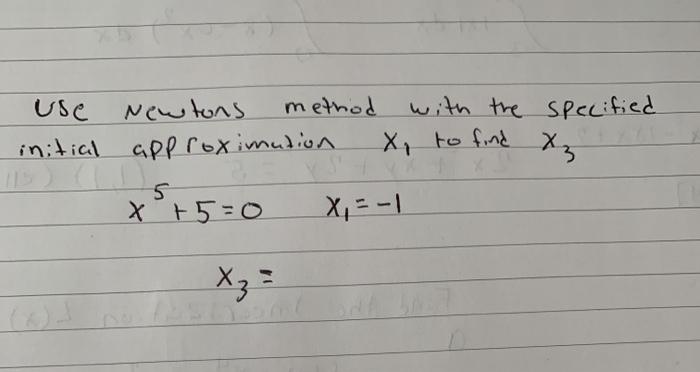 Use Newtons method with the specified
initial approximation x₁ to find x₃
x⁵ + 5 = 0 x₁ = -1
x₃ =